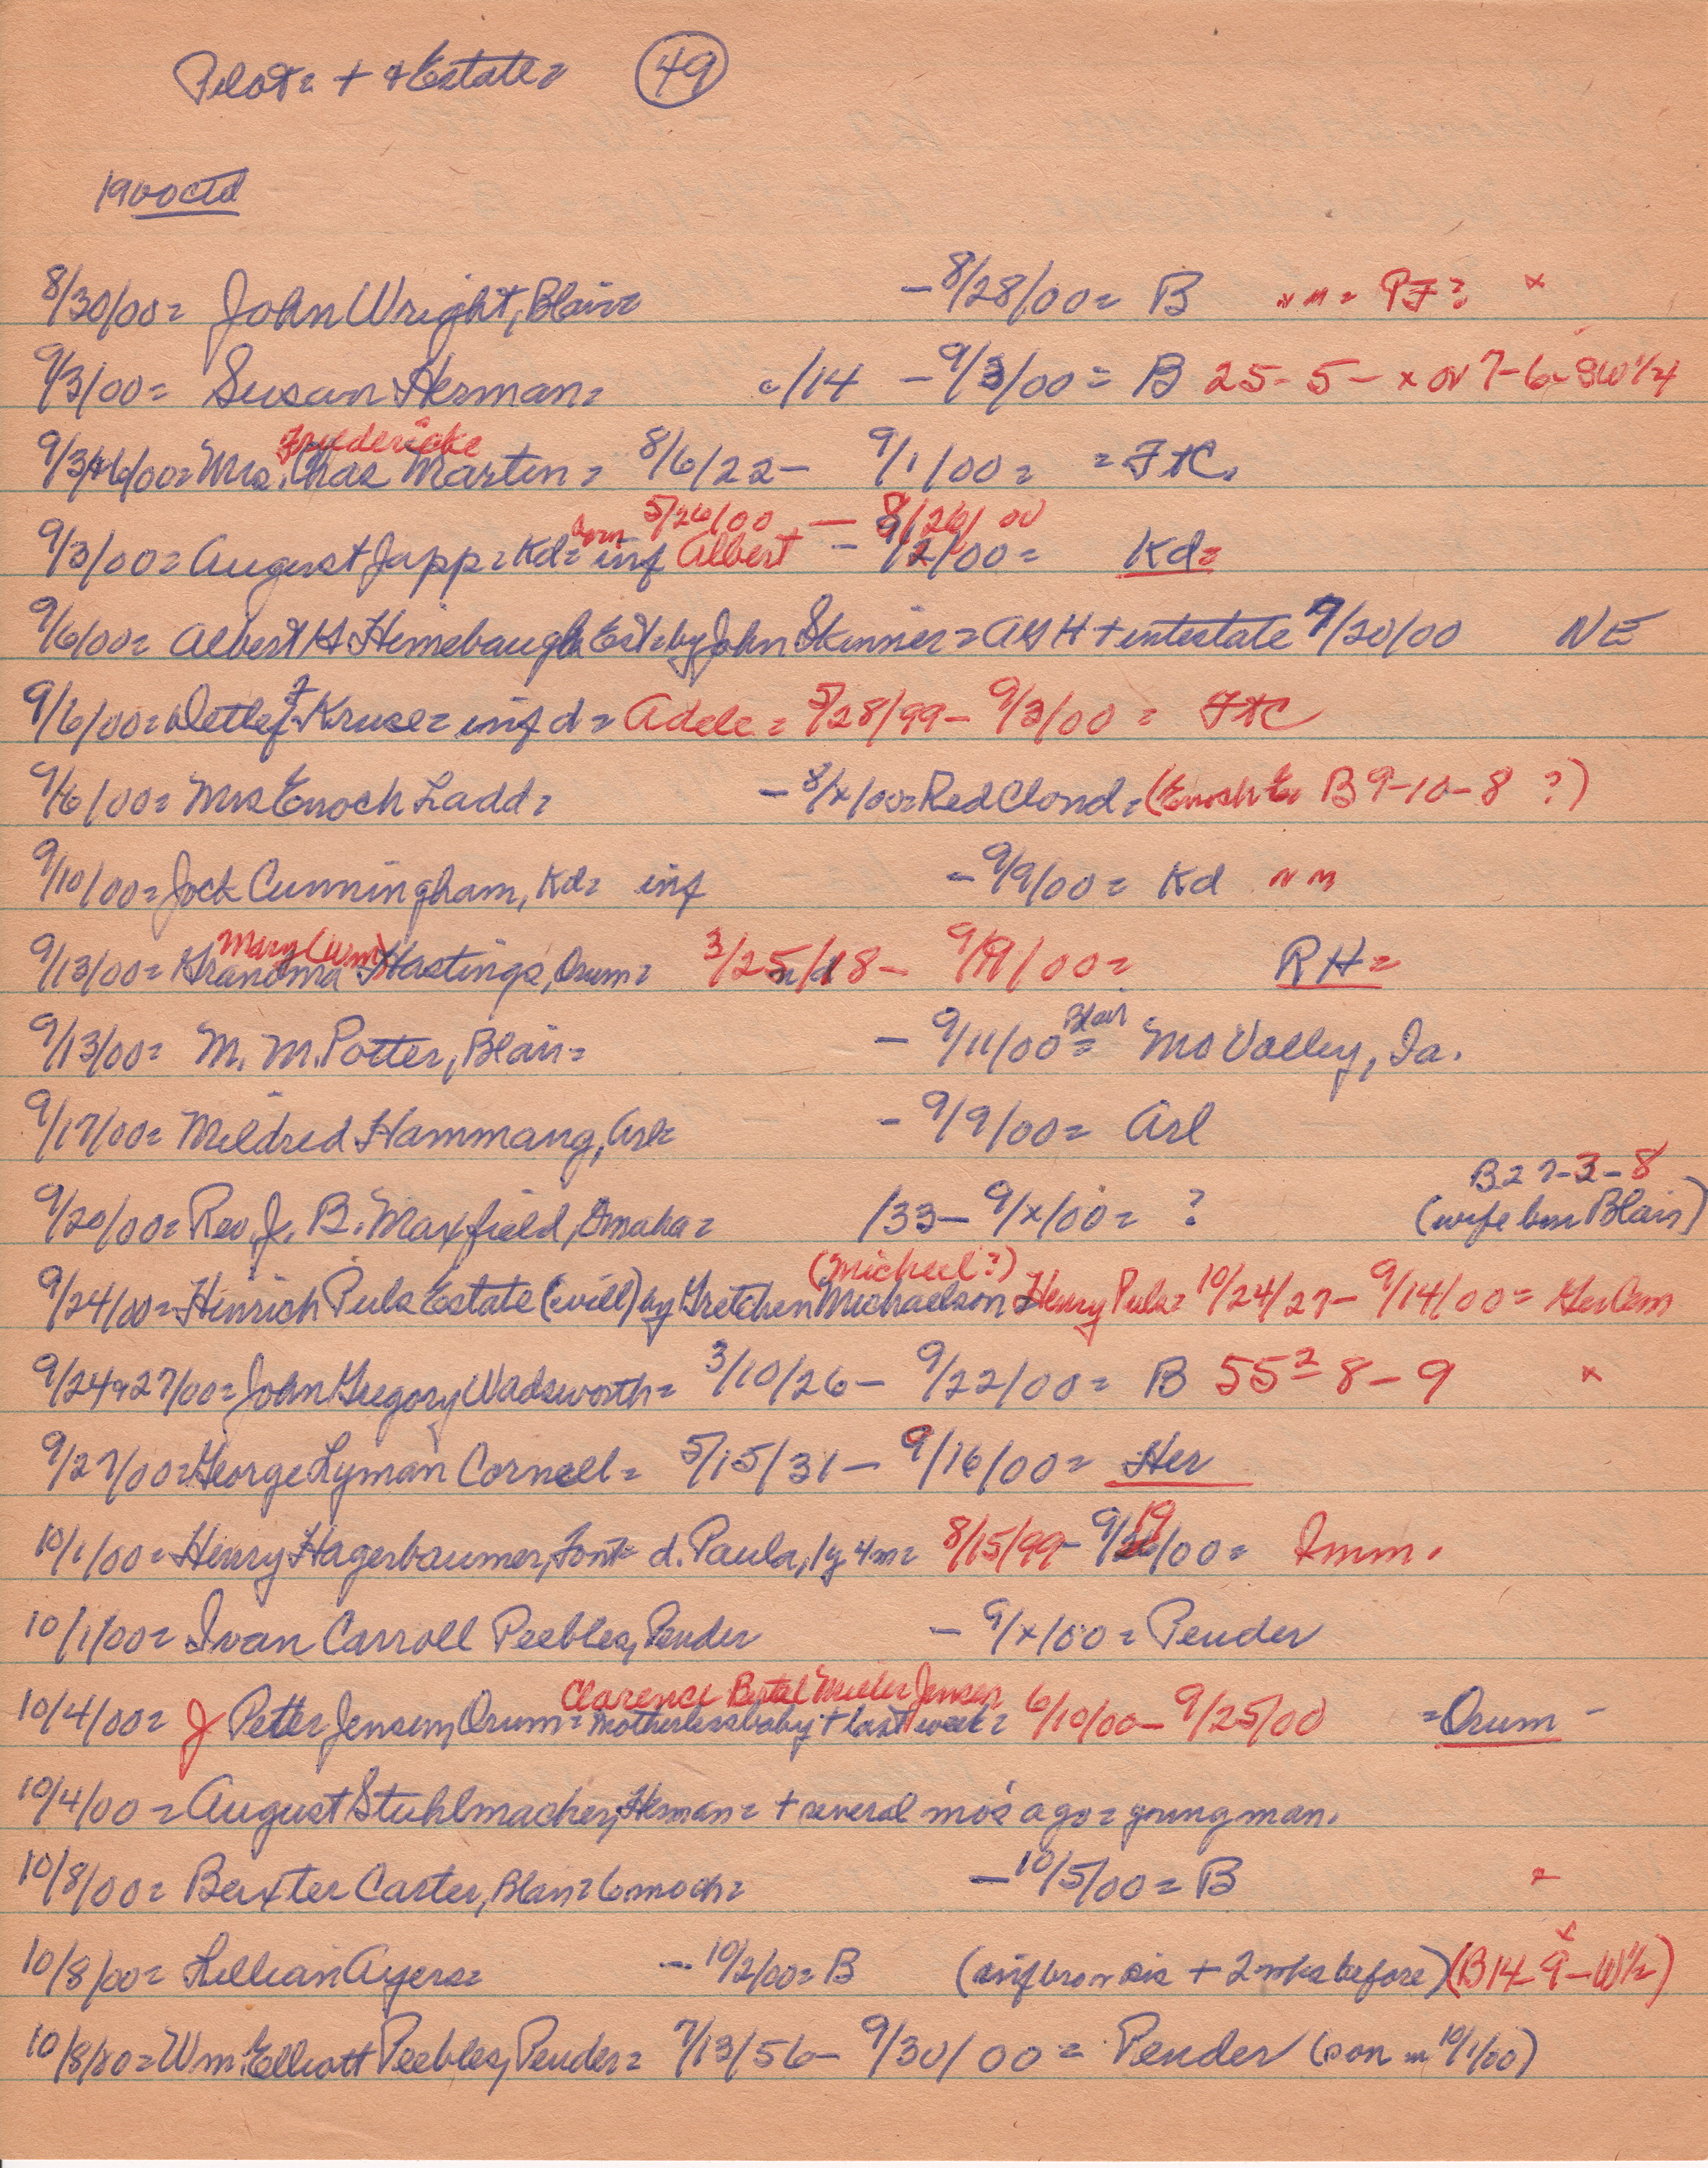 Pilot = + + Estate = 49
1900 ctd
8/30/00 = John Wright, Blair = - 8/28/00 = B nm = PF? x
9/3/00 = Susan Herman = c/14 - 9/3/00 = B 25-5-x or 7-6-SW 1/4
Friedericke
9/3+6/00 = Mrs. Chas Martin = 8/6/22 - 9/1/00 = = FtC.
born 5/26/00 — 8/26/00
9/3/00 = August Japp = Kd = inf Albert - 9/2/00 = Kd =
9/6/00 = Albert H Himebaugh Est = by John Skinner = AH H + intestate 7/20/00 NE
9/6/00 = Detlef F Kruse = inf d = Adele = 5/28/99 - 9/3/00 = FtC
9/6/00 = Mrs Enoch Ladd = - 8/x/00 = Red Cloud = (Enoch E = B 9-10-8 ?)
9/10/00 = Jock Cunningham, Kd = inf - 9/9/00 = Kd nm
Mary (Wm)
9/13/00 = Grandma Hastings, Orum = 3/25/18 - 9/9/00 = RH =
Blair
9/13/00 = M. M. Potter, Blair = - 9/11/00 = Mo Valley, Ia.
9/17/00 = Mildred Hammang, Arl = - 9/9/00 = Arl
B27-3-8
9/20/00 = Rev. J. B. Maxfield, Omaha = /33 - 9/x/00 = ? (wife bur Blair)
(Micheel?)
9/24/00 = Hinrich Puls Estate (will) by Gretchen Michaelson = Henry Puls = 10/24/27 - 9/14/00 = Ger Cem
9/24+27/00 = John Gregory Wadsworth = 3/10/26 - 9/22/00 = B 55²-8-9 x
9/27/00 = George Lyman Cornell = 5/15/31 - 9/16/00 = Her
19
10/1/00 = Henry Hagerbaumer, Font = d. Paula, 1y 4m = 8/15/99 - 9/ /00 = Imm.
10/1/00 = Ivan Carroll Peebles, Pender - 9/x/00 = Pender
Clarence Bertel Meeler Jensen
10/4/00 = J Petter Jensen, Orum = motherless baby + last week = 6/10/00 - 9/25/00 = Orum -
10/4/00 = August Stuhlmacher, Herman = + several mo's ago = young man.
10/8/00 = Baxter Carter, Blair = 6 mo ch = - 10/5/00 = B
x
10/8/00 = Lillian Ayers = - 10/2/00 = B (inf bro or sis + 2 wks before) (B14-9-W½)
10/8/00 = Wm. Elliott Peebles, Pender = 7/13/56 - 9/30/00 = Pender (son in 10/1/00)